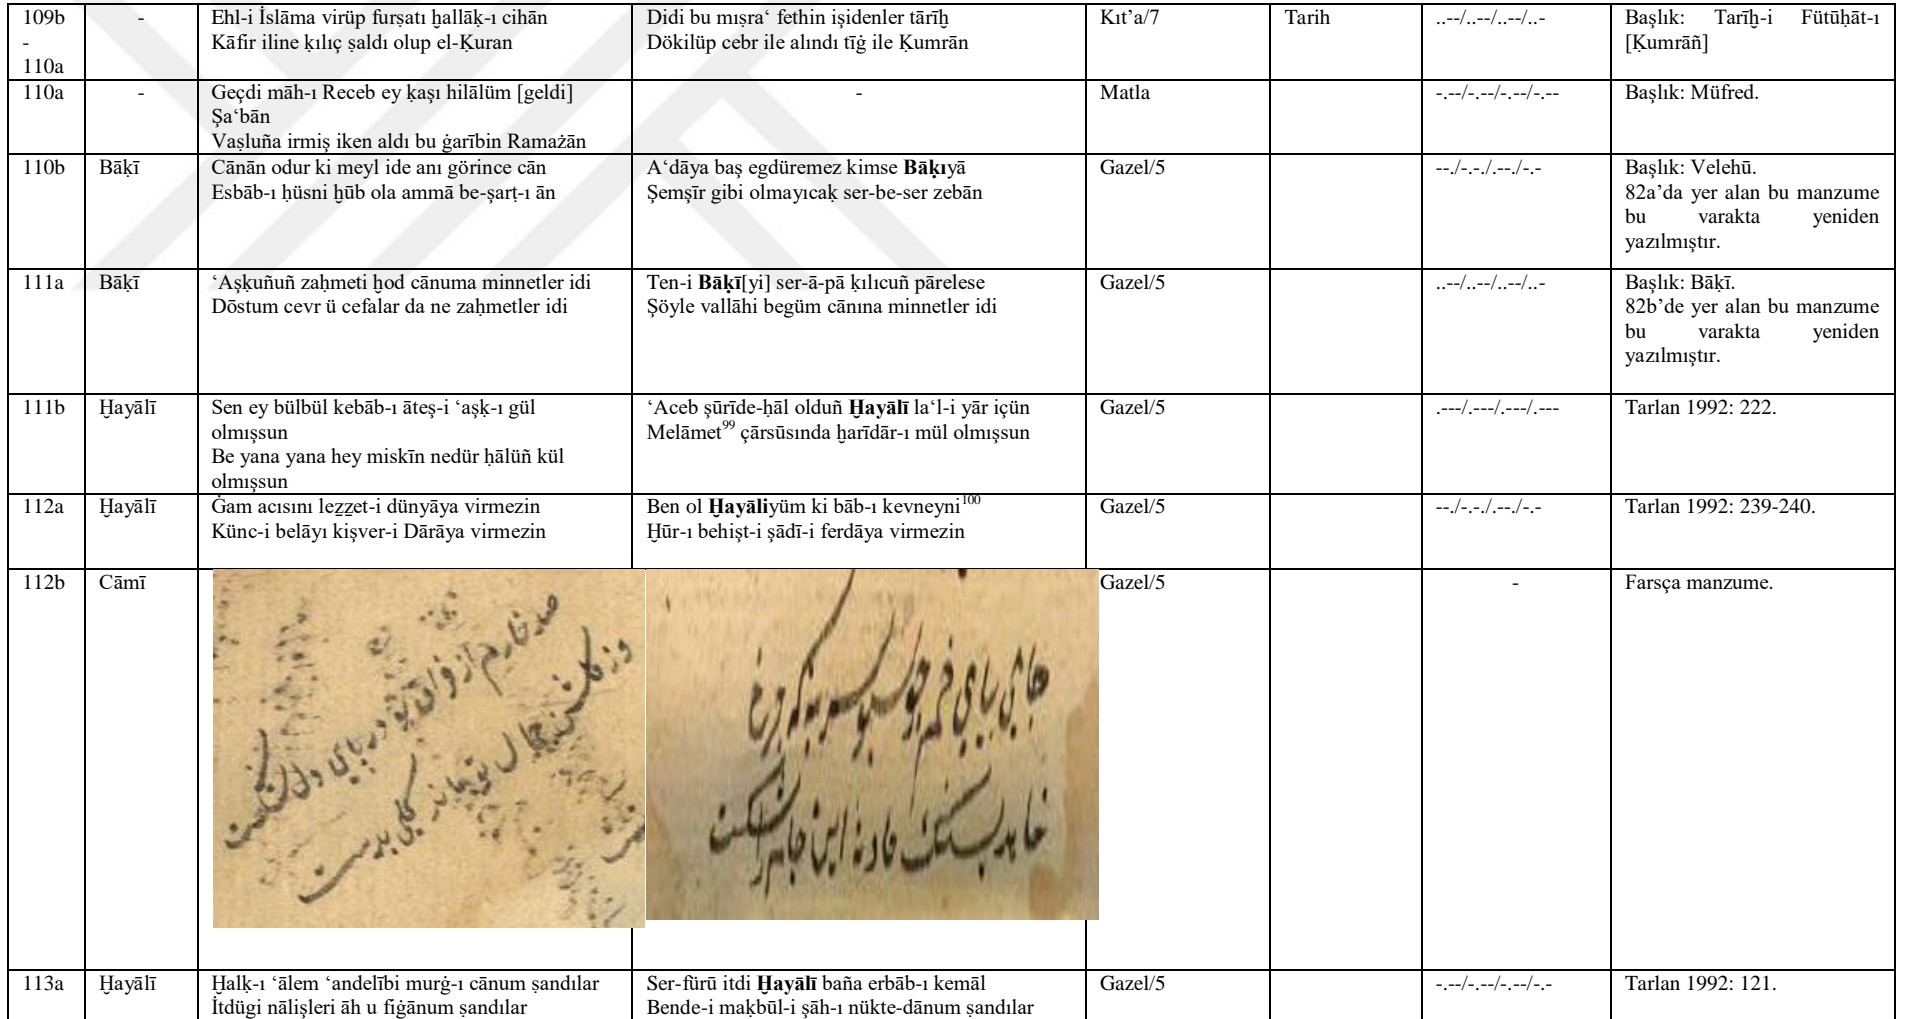 109b
-
110a
-
Ehl-i İslāma virüp furṣatı ḫallāḳ-ı cihān
Kāfir iline ḳılıç ṣaldı olup el-Ḳuran
Didi bu mıṣra‘ fethin işidenler tārīḫ
Dökilüp cebr ile alındı tīġ ile Ḳumrān
Kıt’a/7
Tarih
..--/..--/..--/..-
Başlık: Tarīḫ-i Fütūḥāt-ı
[Ḳumrāñ]
110a
-
Geçdi māh-ı Receb ey ḳaşı hilālüm [geldi]
Şa‘bān
Vaṣluña irmiş iken aldı bu ġarībin Ramażān
-
Matla
-.--/-.--/-.--/-.--
Başlık: Müfred.
110b
Bāḳī
Cānān odur ki meyl ide anı görince cān
Esbāb-ı ḥüsni ḫūb ola ammā be-şarṭ-ı ān
A‘dāya baş egdüremez kimse Bāḳıyā
Şemşīr gibi olmayıcaḳ ser-be-ser zebān
Gazel/5
--./-.-./.--./-.-
Başlık: Velehū.
82a’da yer alan bu manzume
bu varakta yeniden
yazılmıştır.
111a
Bāḳī
‘Aşḳuñuñ zaḥmeti ḫod cānuma minnetler idi
Dōstum cevr ü cefalar da ne zaḥmetler idi
Ten-i Bāḳī[yi] ser-ā-pā ḳılıcuñ pārelese
Şöyle vallāhi begüm cānına minnetler idi
Gazel/5
..--/..--/..--/..-
Başlık: Bāḳī.
82b’de yer alan bu manzume
bu varakta yeniden
yazılmıştır.
111b
Ḫayālī
Sen ey bülbül kebāb-ı āteş-i ‘aşḳ-ı gül
olmışsun
Be yana yana hey miskīn nedür ḥālüñ kül
olmışsun
‘Aceb şūrīde-ḥāl olduñ Ḫayālī la‘l-i yār içün
Melāmet99 çārsūsında ḫarīdār-ı mül olmışsun
Gazel/5
.---/.---/.---/.---
Tarlan 1992: 222.
112a
Ḫayālī
Ġam acısını leẕẕet-i dünyāya virmezin
Künc-i belāyı kişver-i Dārāya virmezin
Ben ol Ḫayāliyüm ki bāb-ı kevneyni100
Ḥūr-ı behişt-i şādī-i ferdāya virmezin
Gazel/5
--./-.-./.--./-.-
Tarlan 1992: 239-240.
112b
Cāmī
صد خارم از فراق تو در پای دل شکست
وز گلشن جمال تو نامد گلی بدست
جامی بپای خم چو سبو سر بنه که چرخ
خاهد بسنگ حادثه این جام را شکست
Gazel/5
-
Farsça manzume.
113a
Ḫayālī
Ḫalḳ-ı ‘ālem ‘andelībi murġ-ı cānum ṣandılar
İtdügi nālişleri āh u fiġānum ṣandılar
Ser-fürū itdi Ḫayālī baña erbāb-ı kemāl
Bende-i maḳbūl-i şāh-ı nükte-dānum ṣandılar
Gazel/5
-.--/-.--/-.--/-.-
Tarlan 1992: 121.